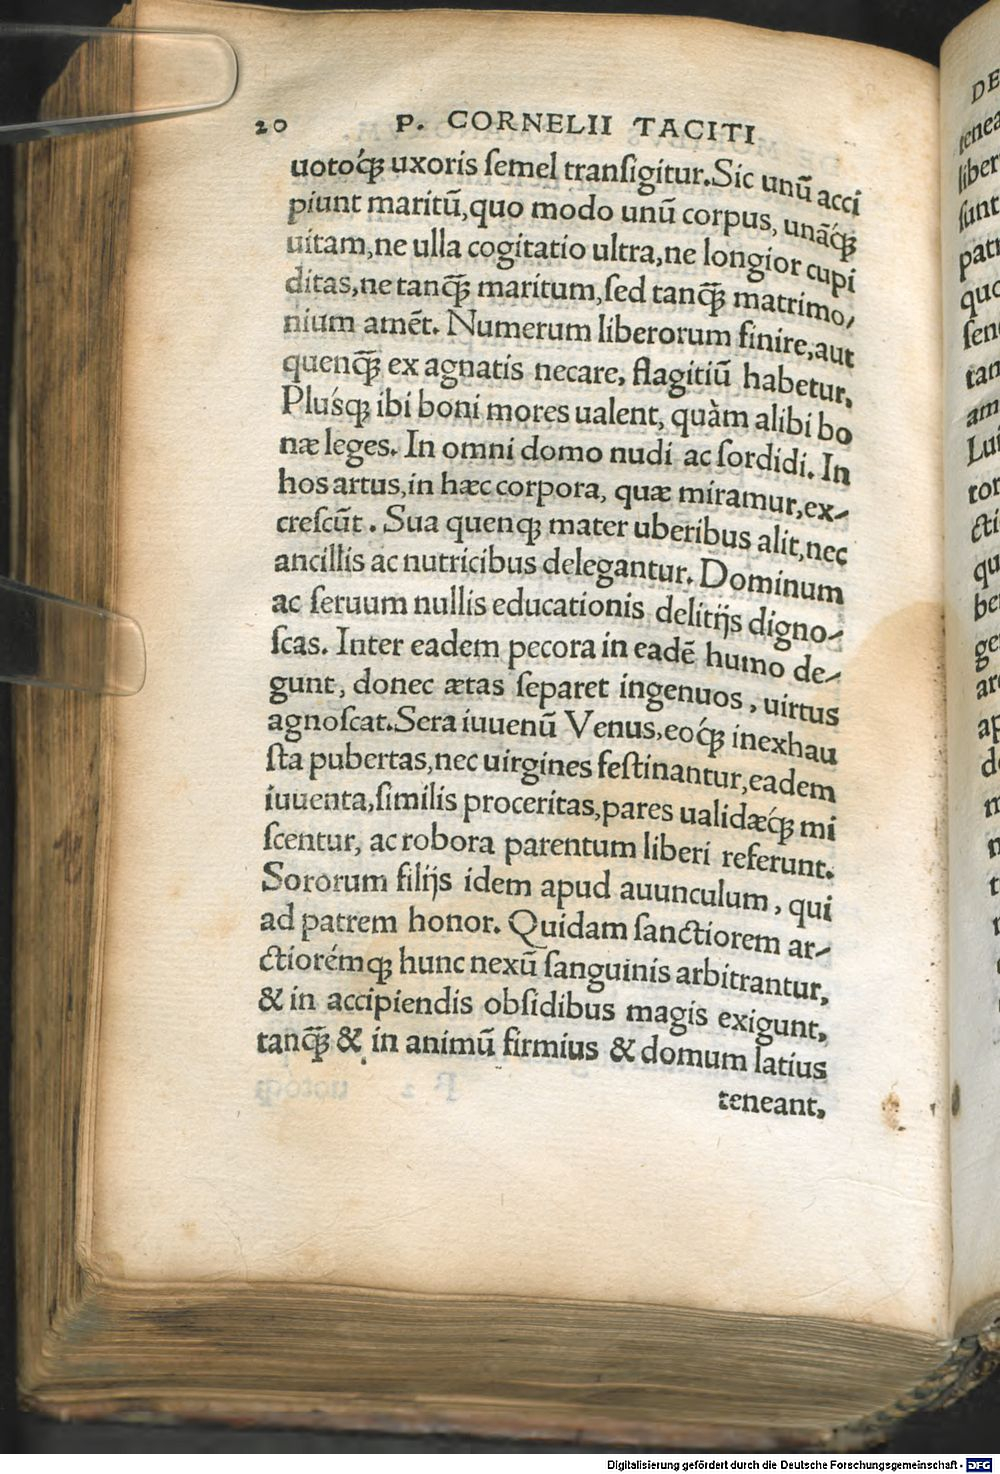 20 P. CORNELII TACITI
uotóq́ꝫ uxoris ſemel tranſigitur. Sic unũ acci
piunt maritũ, quo modo unũ corpus, unãq́ꝫ
uitam, ne ulla cogitatio ultra, ne longior cupi
ditas, ne tanq̃ꝫ maritum, ſed tanq̃ꝫ matrimo⸗
nium amẽt. Numerum liberorum finire, aut
quenq̃ꝫ ex agnatis necare, flagitiũ habetur.
Pluśqꝫ ibi boni mores ualent, quàm alibi bo
næ leges. In omni domo nudi ac ſordidi. In
hos artus, in hæc corpora, quæ miramur, ex⸗
creſcũt. Sua quenqꝫ mater uberibus alit, nec
ancillis ac nutricibus delegantur. Dominum
ac ſeruum nullis educationis delitijs digno⸗
ſcas. Inter eadem pecora in eadẽ humo de⸗
gunt, donec ætas ſeparet ingenuos, uirtus
agnoſcat. Sera iuuenũ Venus, eoq́ꝫ inexhau
ſta pubertas, nec uirgines feſtinantur, eadem
iuuenta, ſimilis proceritas, pares ualidæq́ꝫ mi
ſcentur, ac robora parentum liberi referunt.
Sororum filijs idem apud auunculum, qui
ad patrem honor. Quidam ſanctiorem ar⸗
ctiorémqꝫ hunc nexũ ſanguinis arbitrantur,
& in accipiendis obſidibus magis exigunt,
tanq̃ꝫ & in animũ firmius & domum latius
teneant,
DE
tenea
liber
ſunt
patr
quo
ſen
tan
am
Lui
tor
cti
qu
be
ge
ar
ap
Digitalisierung gefördert durch die Deutsche Forschungsgemeinschaft - DFG